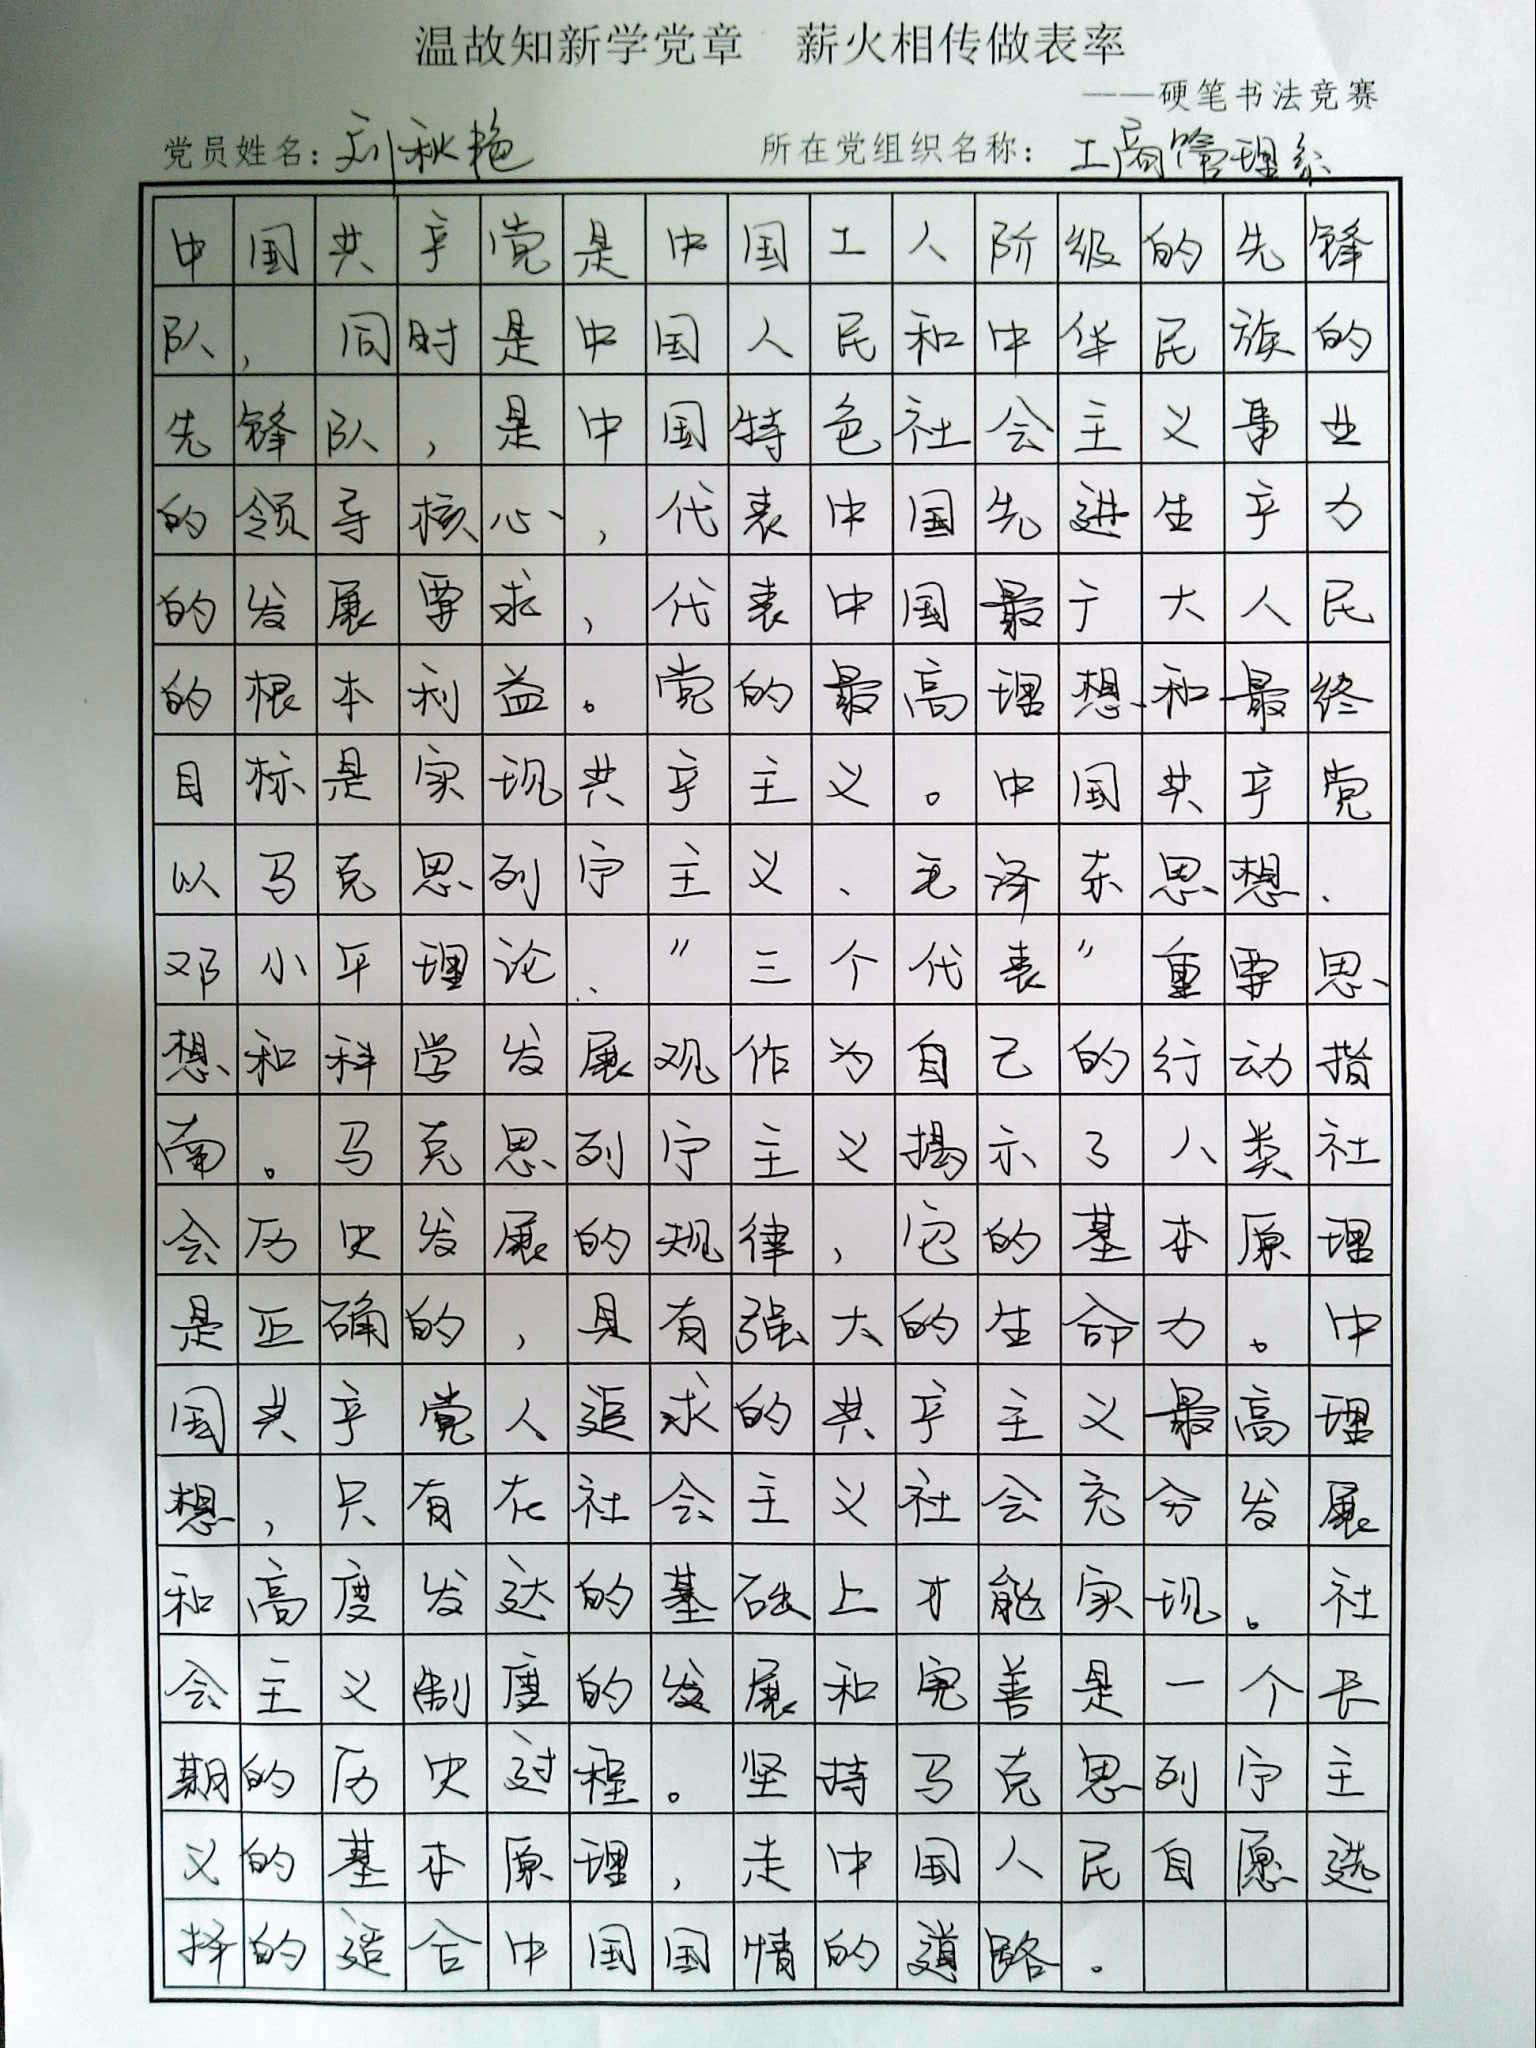 温故知新学党章 薪火相传做表率
——硬笔书法竞赛
党员姓名：刘秋艳 所在党组织名称：工商管理系
中国共产党是中国工人阶级的先锋
队，同时是中国人民和中华民族的
先锋队，是中国特色社会主义事业
的领导核心，代表中国先进生产力
的发展要求，代表中国最广大人民
的根本利益。党的最高理想和最终
目标是实现共产主义。中国共产党
以马克思列宁主义、毛泽东思想、
邓小平理论、“三个代表”重要思
想和科学发展观作为自己的行动指
南。马克思列宁主义揭示了人类社
会历史发展的规律，它的基本原理
是正确的，具有强大的生命力。中
国共产党人追求的共产主义最高理
想，只有在社会主义社会充分发展
和高度发达的基础上才能实现。社
会主义制度的发展和完善是一个长
期的历史过程。坚持马克思列宁主
义的基本原理，走中国人民自愿选
择的适合中国国情的道路。